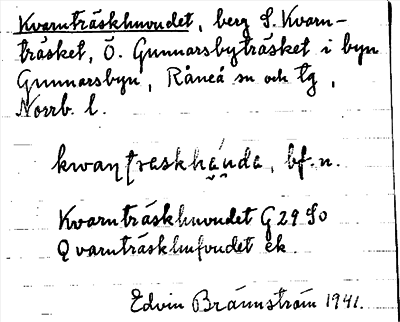 Kvarnträskhuvudet, berg S. Kvarn-
träsket, Ö. Gunnarsbyträsket i byn
Gunnarsbyn, Råneå sn och tg,
Norrb. l.
bf. n.
Kvarnträskhuvudet G 29 SO
Qvarnträskhufvudet ek.
Edvin Brännström 1941.